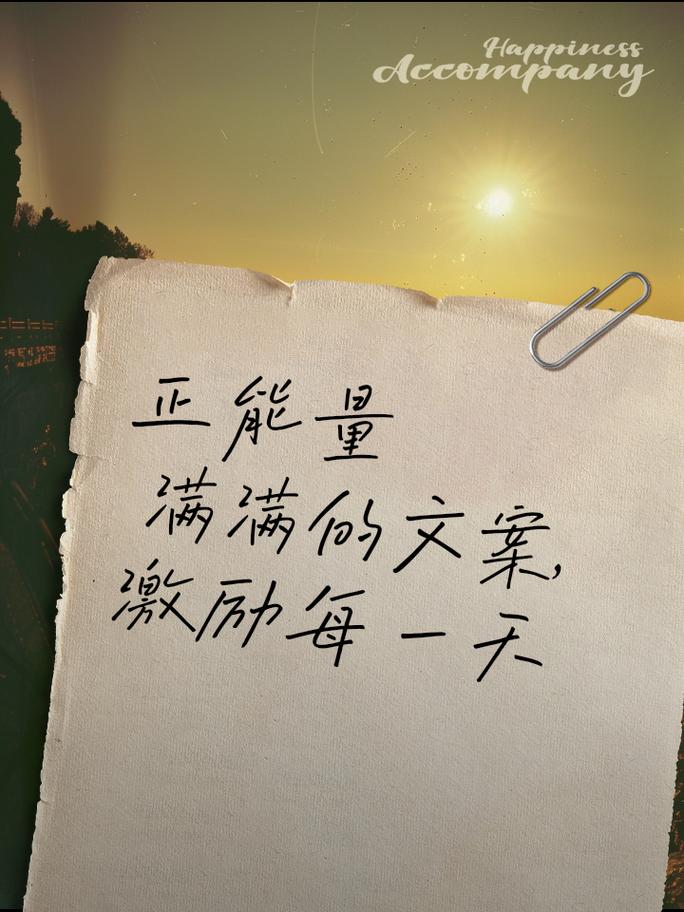 Happiness
Accompany
正能量
满满的文案,
激励每一天